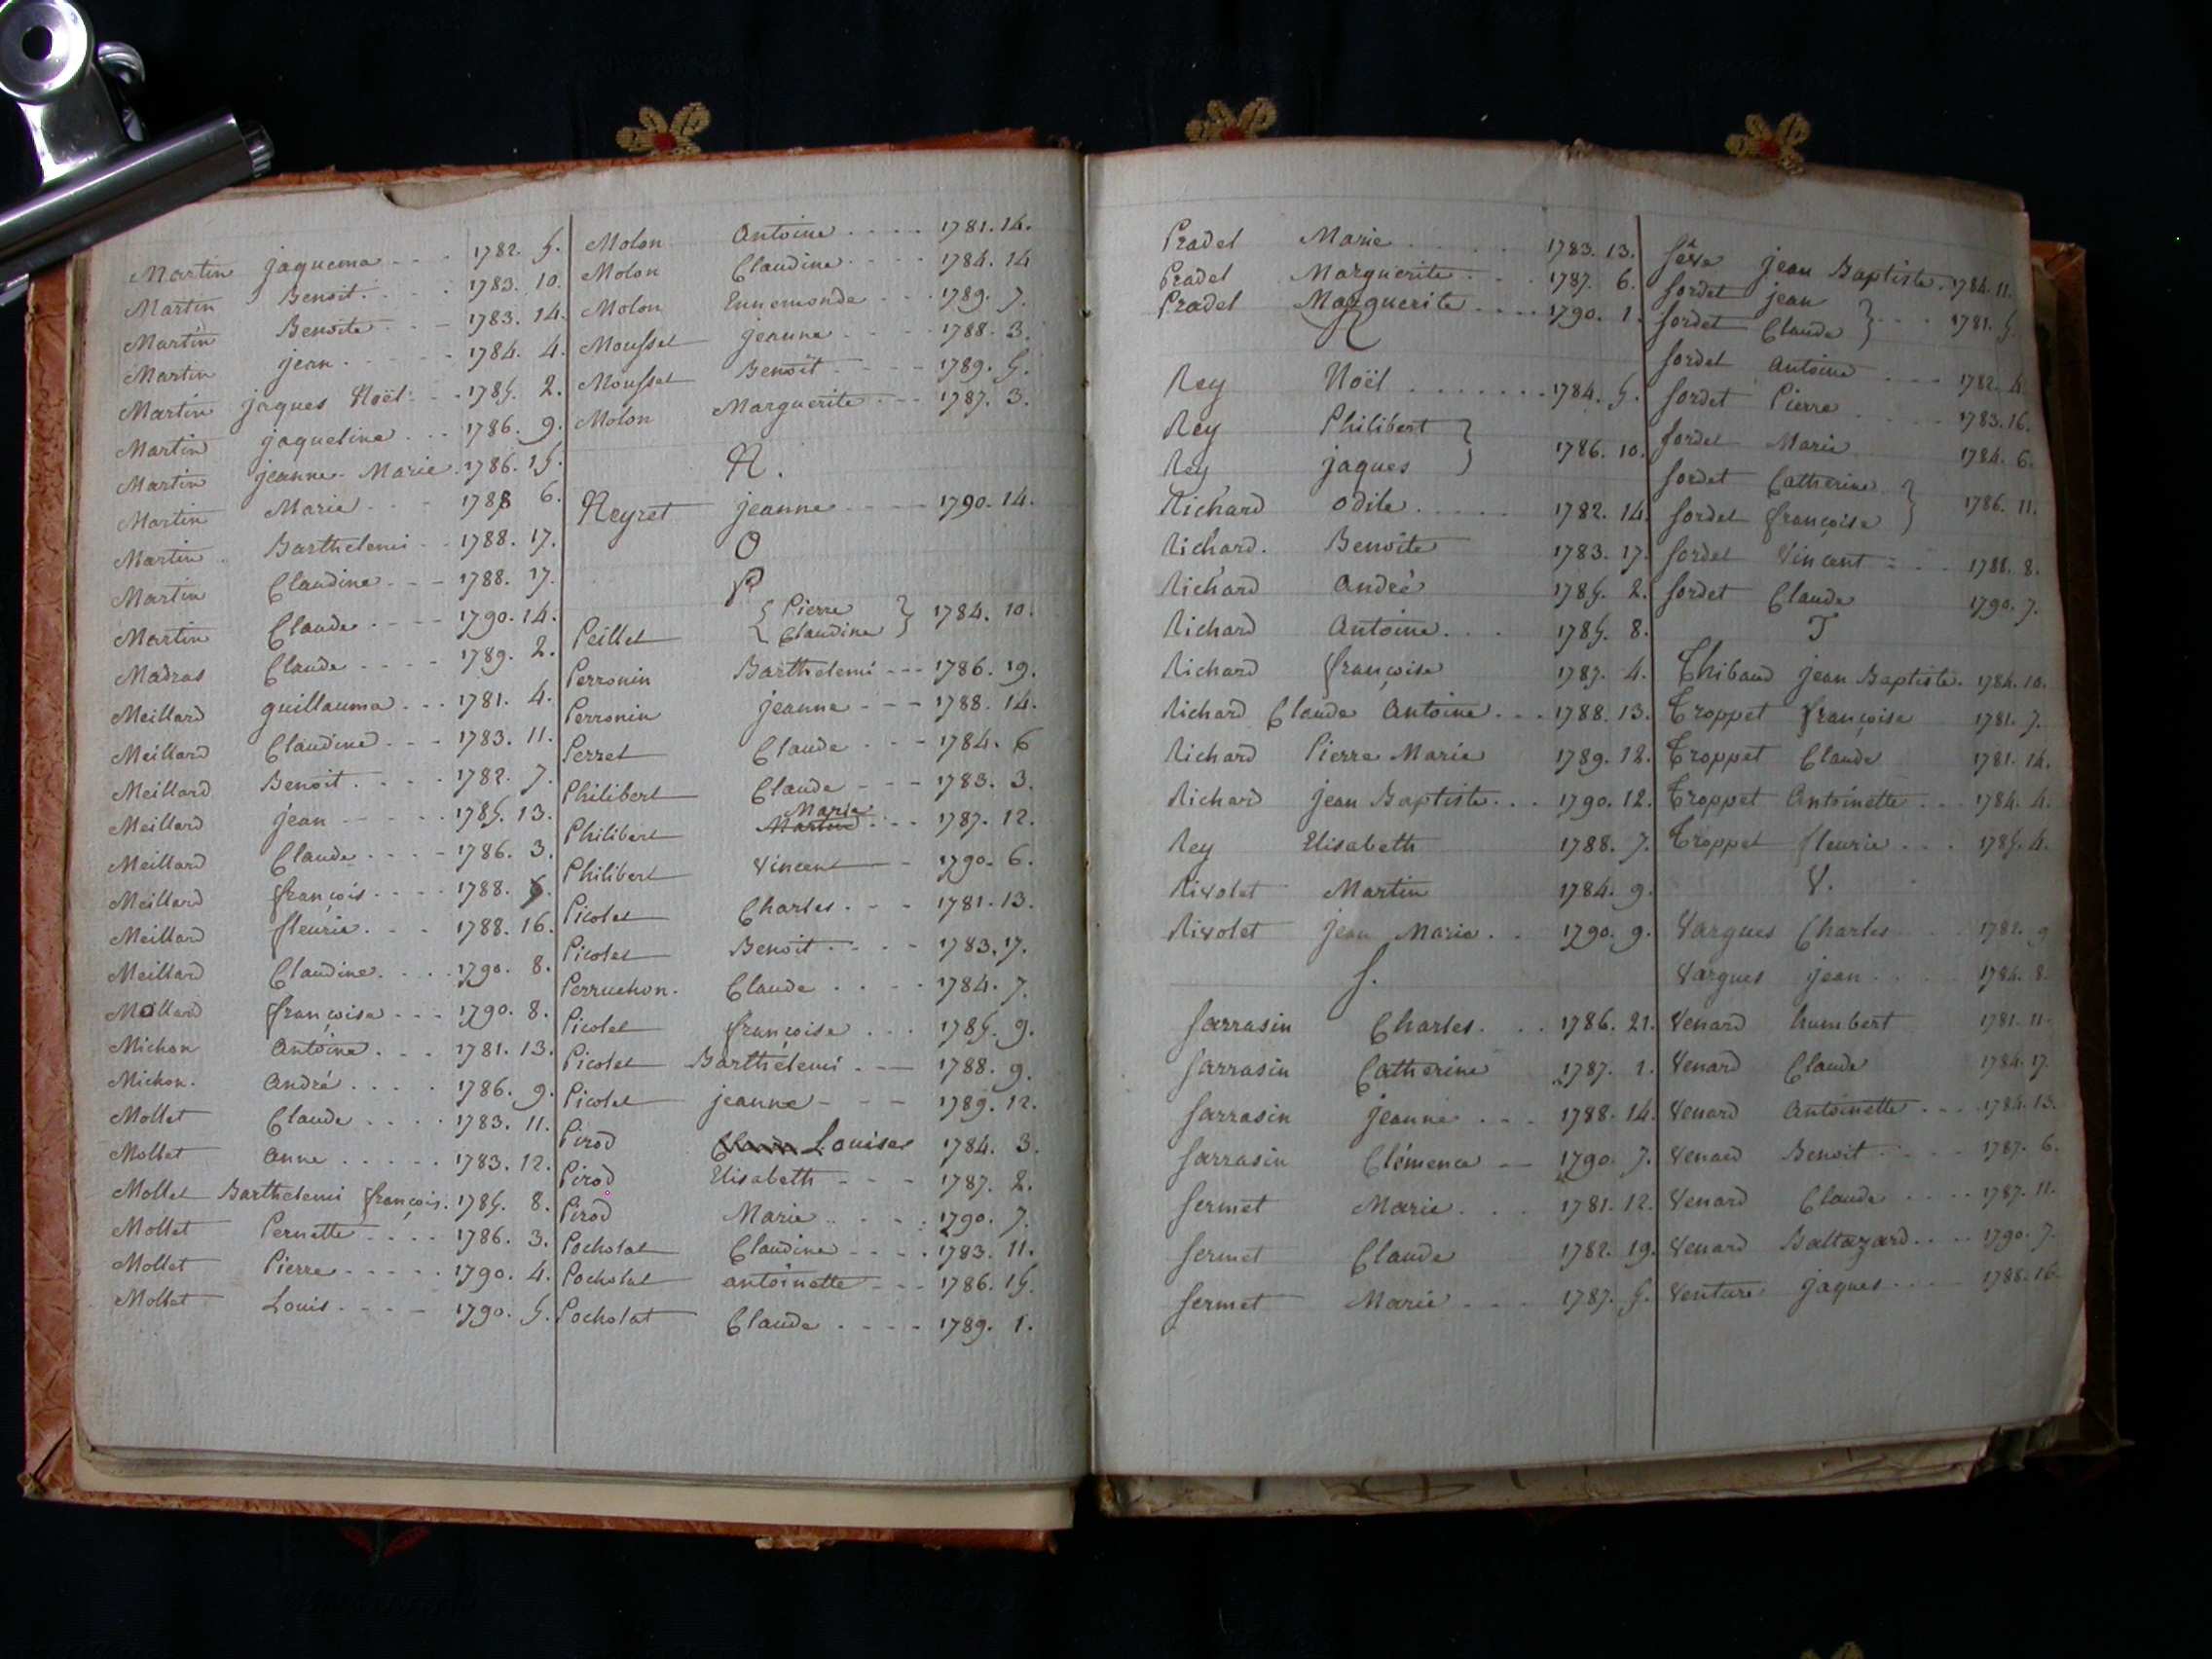 Martin jaquema - - - 1782. 5.
Martin Benoit. - - - 1783. 10.
Martin Benoite - - - 1783. 14.
Martin jean - - - - 1784. 4.
Martin jaques Noël - - 1785. 2.
Martin jaqueline - - - 1786. 9.
Martin jeanne-Marie. 1786. 15.
Martin Marie - - - 1788 6.
Martin Barthelemi - - 1788. 17.
Martin Claudine - - - 1788. 17.
Martin Claude - - - - 1790. 14.
Madras Claude - - - - 1789. 2.
Meillard guillauma - - - 1781. 4.
Meillard Claudine - - - 1783. 11.
Meillard Benoit - - - - 1782. 7.
Meillard jean - - - - - 1785. 13.
Meillard Claude - - - - 1786. 3.
Meillard françois - - - - 1788.
Meillard fleurie - - - 1788. 16.
Meillard Claudine - - - - 1790. 8.
Mollard françoise - - - 1790. 8.
Michon Antoine - - - 1781. 13.
Michon. André - - - - 1786. 9.
Mollet Claude - - - - 1783. 11.
Mollet Anne - - - - - 1783. 12.
Mollet Barthelemi françois. 1785. 8.
Mollet Pernette - - - - 1786. 3.
Mollet Pierre - - - - - 1790. 4.
Mollet Louis - - - - 1790. 5.
Molon Antoine - - - - 1781. 14.
Molon Claudine - - - - 1784. 14
Molon Ennemonde - - - 1789. 7.
Mousset jeanne - - - - 1788. 3.
Mousset Benoit - - - - 1789. 5.
Molon Marguerite - - - 1787. 3.
N.
Neyret jeanne - - - - 1790. 14.
O
P
Peillet { Pierre
Claudine } 1784. 10.
Perronin Barthelemi - - - 1786. 19.
Perronin jeanne - - - 1788. 14.
Perret Claude - - - 1784. 6
Philibert Claude - - - 1783. 3.
Philibert Marie - - - 1787. 12.
Philibert Vincent - - 1790. 6.
Picolet Charles - - - 1781. 13.
Picolet Benoit - - - - 1783. 17.
Perruchon. Claude - - - - 1784. 7.
Picolet françoise - - - 1785. 9.
Picolet Barthélemi - - - 1788. 9.
Picolet jeanne - - - 1789. 12.
Pirod Louise 1784. 3.
Pirod Elisabeth - - - 1787. 2.
Pirod Marie - - - - 1790. 7.
Pocholat Claudine - - - - 1783. 11.
Pocholat antoinette - - - 1786. 15.
Pocholat Claude - - - - 1789. 1.
Pradel Marie - - - - - 1783. 13.
Pradel Marguerite - - - 1787. 6.
Pradel Marguerite - - - - 1790. 1.
R
Rey Noël - - - - - - - 1784. 5.
Rey Philibert }
Rey jaques } 1786. 10.
Richard Odile - - - - - 1782. 14.
Richard. Benoite 1783. 17.
Richard André 1785. 2.
Richard Antoine - - - 1785. 8.
Richard françoise 1787. 4.
Richard Claude Antoine - - - 1788. 13.
Richard Pierre Marie 1789. 12.
Richard jean Baptiste - - - 1790. 12.
Rey Elisabeth 1788. 7.
Rivolet Martin 1784. 9.
Rivolet jean Marie - - 1790. 9.
S.
Sarrasin Charles - - - 1786. 21.
Sarrasin Catherine 1787. 1.
Sarrasin jeanne - - - 1788. 14.
Sarrasin Clémence - - 1790. 7.
Sermet Marie - - - 1781. 12.
Sermet Claude 1782. 19.
Sermet Marie - - - 1787. 5.
Sève jean Baptiste. 1784. 11.
Sordet jean }
Sordet Claude } - - - 1781. 5.
Sordet Antoine - - - 1782. 4.
Sordet Pierre - - - - 1783. 16.
Sordet Marie 1784. 6.
Sordet Catherine }
Sordet françoise } 1786. 11.
Sordet Vincent - - - 1788. 8.
Sordet Claude 1790. 7.
T
Thibaud jean Baptiste. 1784. 10.
Troppet françoise 1781. 7.
Troppet Claude 1781. 14.
Troppet Antoinette - - - 1784. 4.
Troppet fleurie - - - 1785. 4.
V.
Vargues Charles - - - 1782. 9
Vargues jean - - - - 1784. 8.
Venard humbert 1781. 11.
Venard Claude 1784. 17.
Venard Antoinette - - - 1784. 13.
Venard Benoit - - - - 1787. 6.
Venard Claude - - - - 1787. 11.
Venard Baltazard - - - - 1790. 7.
Venture jaques - - - - 1788. 16.